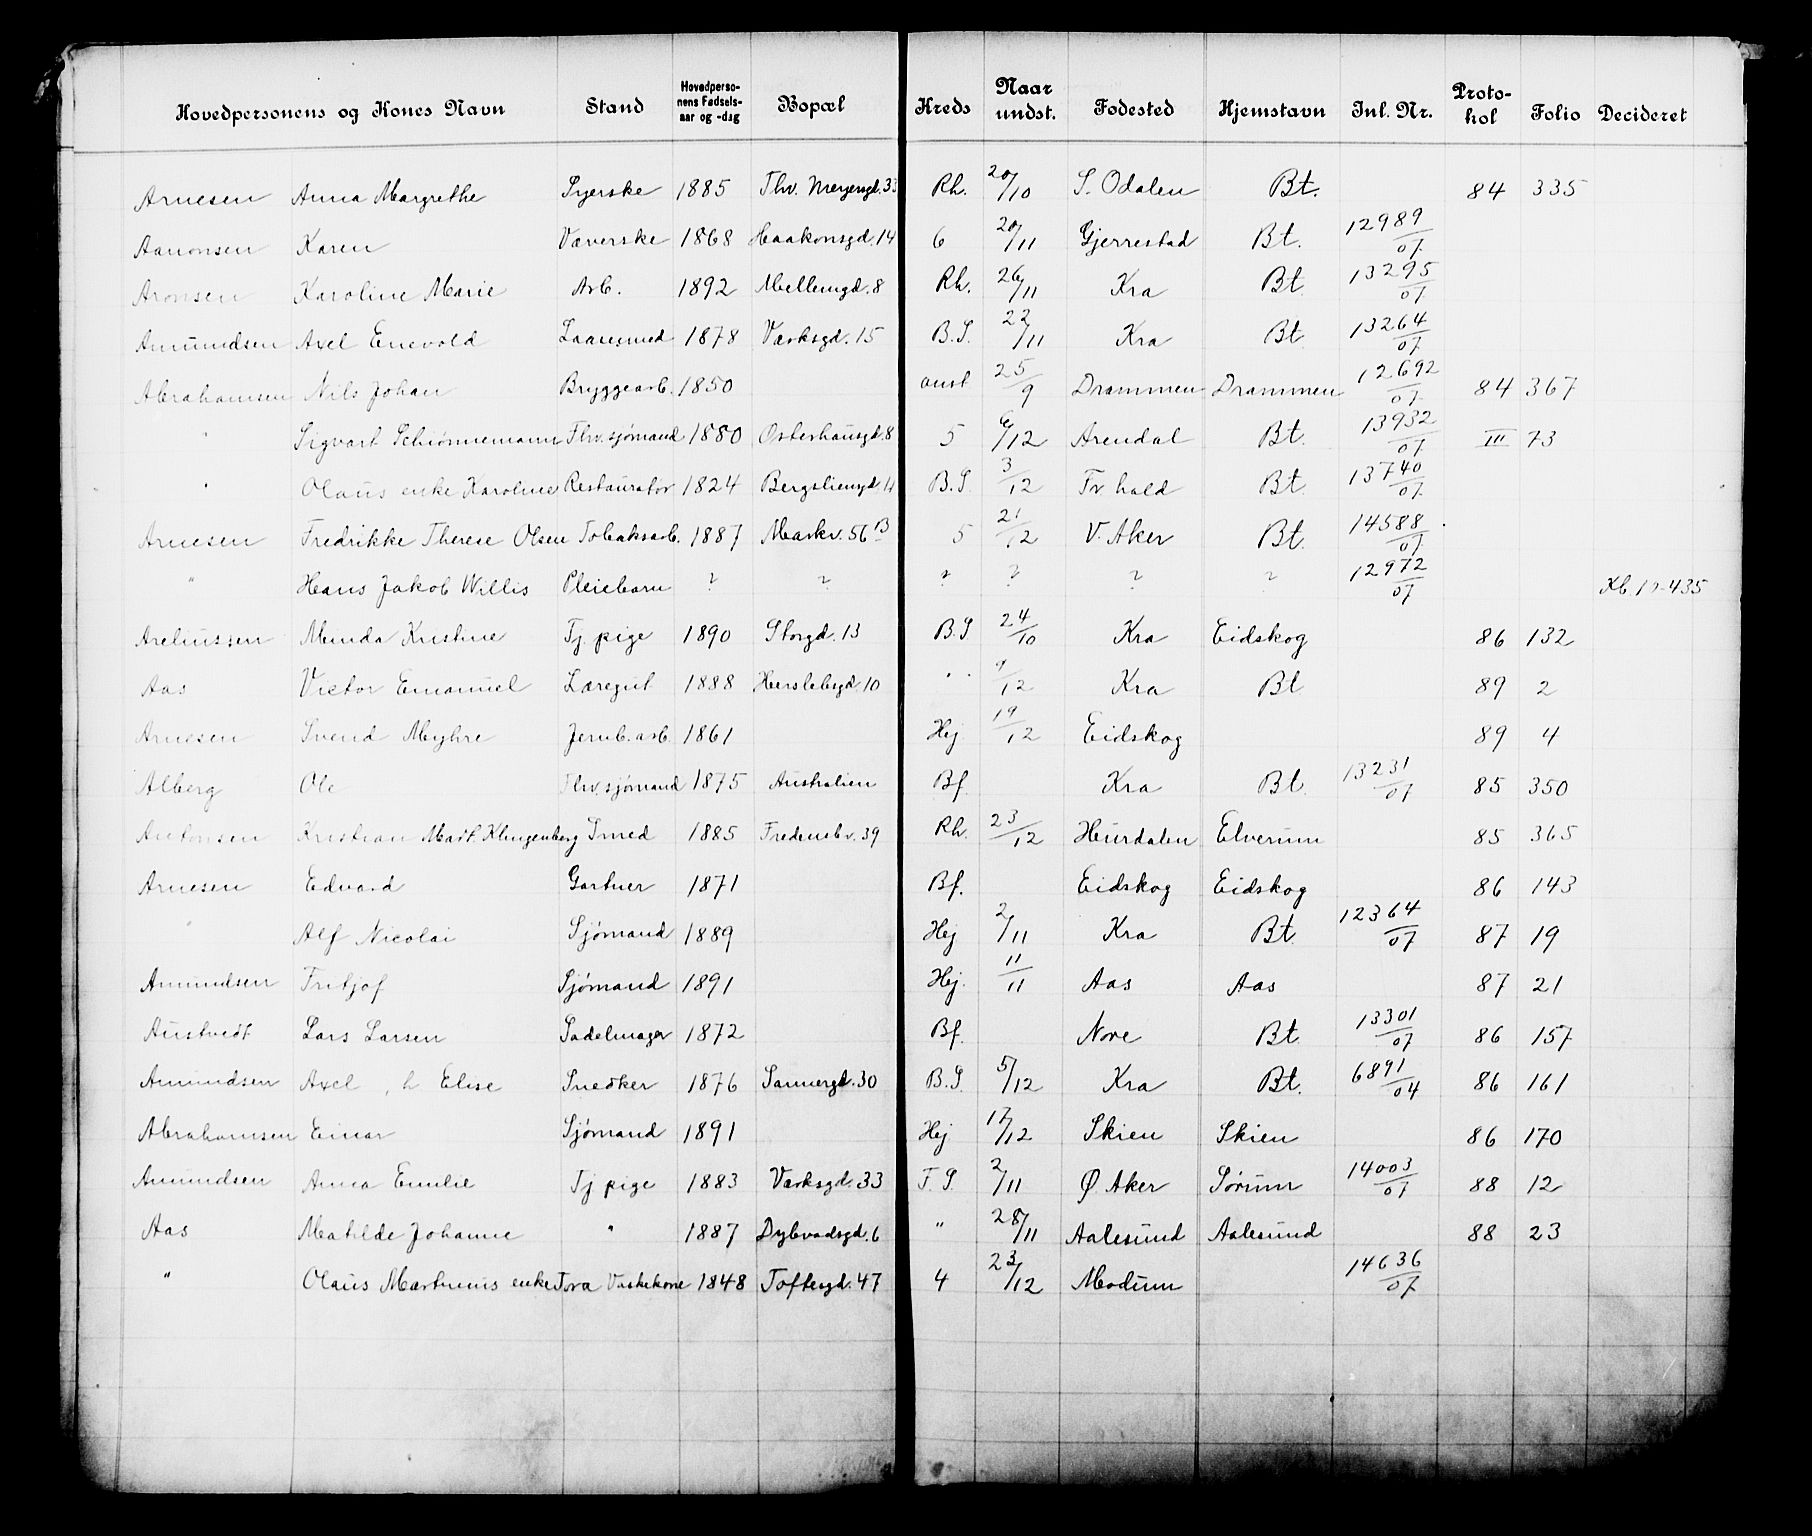 Hovedpersonens og Kones Navn Stand Hovedpersonens Fødselsaar og -dag Bopæl Kreds Naar undst. Fødested Hjemstavn Inl. Nr. Protokol Folio Decideret
Arnesen Anna Margrethe Syerske 1885 Thv. Meyersgd. 33 Rh. 20/10 S. Odalen Bt. 84 335
Aanonsen Karen Væverske 1868 Haakonsgd. 14 6 20/11 Gjerrestad Bt. 12989/07
Aronsen Karoline Marie Arb. 1892 Mellemgd. 8 Rh. 26/11 Kra Bt. 13295/07
Amundsen Axel Enevold Laasesmed 1878 Værksgd. 15 B.S. 22/11 Kra Bt 13264/07
Abrahamsen Nils Johan Bryggearb. 1850 anst 25/9 Drammen Drammen 12692/07 84 367
" Sigvart Schiønnemann Fhv. sjømand 1880 Osterhausgd. 8 5 6/12 Arendal Bt. 13932/07 III 73
" Olaus enke Karoline Restauratør 1824 Bergsliengd. B.S. 3/12 Fr. hald Bt 13740/07
Arnesen Fredrikke Therese Olsen Tobaksarb. 1887 Markv. 56 B 5 21/12 V. Aker Bt. 14588/07
" Hans Jakob Willis Pleiebarn ? ? ? ? ? ? 12972/07 435
Areliussen Minda Kristine Tj. pige 1890 Storgd. 13 B.S 24/10 Kra Eidskog 86 132
Aas Victor Emanuel Læregut 1888 Herslebsgd. 10 " 9/12 Kra Bt 89 2
Arnesen Svend Myhre Jernb. arb. 1861 Hej 19/12 Eidskog 89 4
Alberg Ole Fhv. sjømand 1875 Australien Bf. Kra Bt. 13231/07 85 350
Antonsen Kristian Mart. Klingenberg Smed 1885 Fredensbv. 39 Rh. 23/12 Hurdalen Elverum 85 365
Arnesen Edvard Gartner 1871 Bf. Eidskog Eidskog 86 143
" Alf Nicolai Sjømand 1889 Hej 2/11 Kra Bt. 12364/07 87 19
Amundsen Fritjof Sjømand 1891 Hej. 11/11 Aas Aas 87 21
Austvedt Lars Larsen Sadelmager 1872 Bf. Nore Bt. 13301/07 86 157
Amundsen Axel, h Elise Snedker 1876 Sannergd. 30 B.S. 5/12 Kra Bt. 6891/04 86 161
Abrahamsen Einar Sjømand 1891 Hej 17/12 Skien Skien 86 170
Amundsen Anna Emilie Tj pige 1883 Værksgd. 33 F.S. 2/11 Ø. Aker Sørum 14003/07 88 12
Aas Matilde Johanne " 1887 Dybvadsgd. 6 " 28/11 Aalesund Aalesund 88 23
" Olaus Marthinus enke Tora Vaskekone 1848 Toftesgd. 47 4 23/12 Modum 14636/07